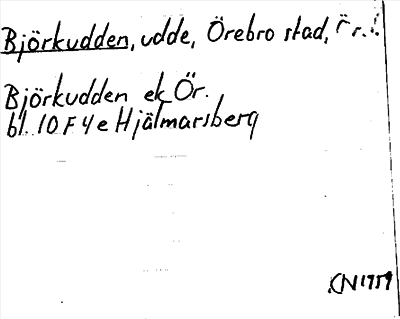 Björkudden, udde, Örebro stad, Ör.
Björkudden ek Ör.
bl. 10 F 4 e Hjälmarsberg
CN 1959